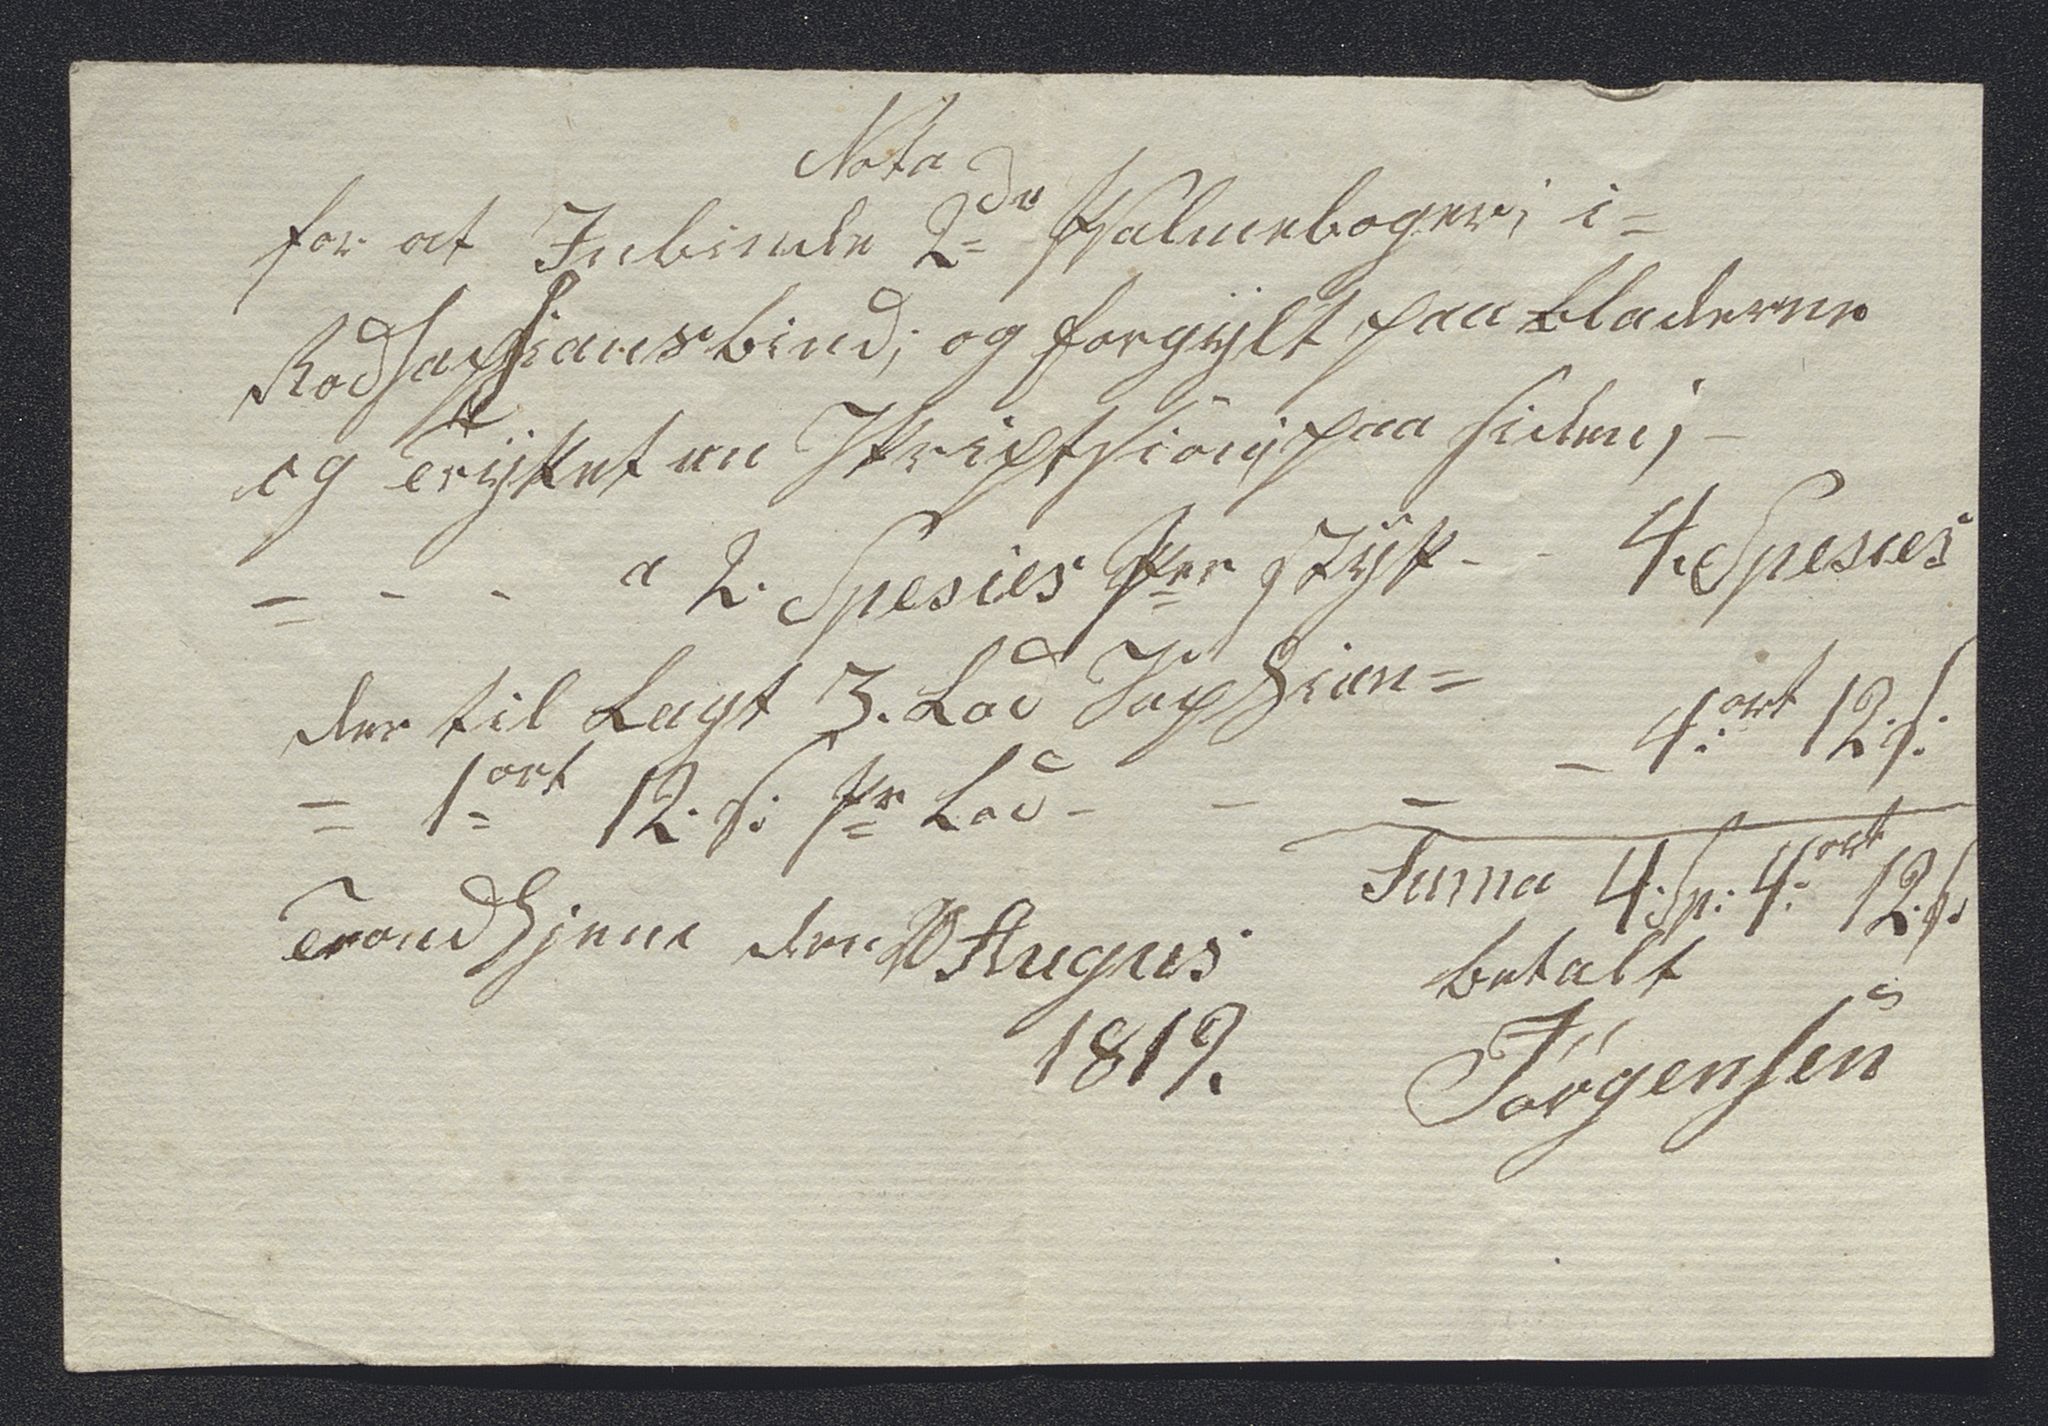 Nota
for at Inbinde 2de Psalmeboger; i=
Rod Saphiansbind; og forgÿlt paa bladerne
og Trÿket en Skriptsion; paa siden; -
= - - a 2. Spesies Per støk - - 4. Spesies
der til Lagt 3. Lod Saphian=
= 1ort 12. s: Pr Lod - - - 4:ort 12. s:
Suma 4. Sp: 4:ort 12. s:
Trondhjem den Augus betalt
1819. Jørgensen